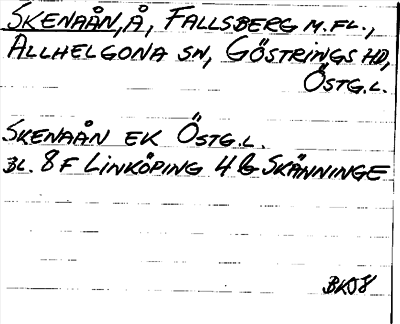 SKENAÅN, Å, FALLSBERG M.FL.,
ALLHELGONA SN, GÖSTRINGS HD,
ÖSTG.L.
SKENAÅN EK ÖSTG.L.
BL. 8 F LINKÖPING 4 b SKÄNNINGE